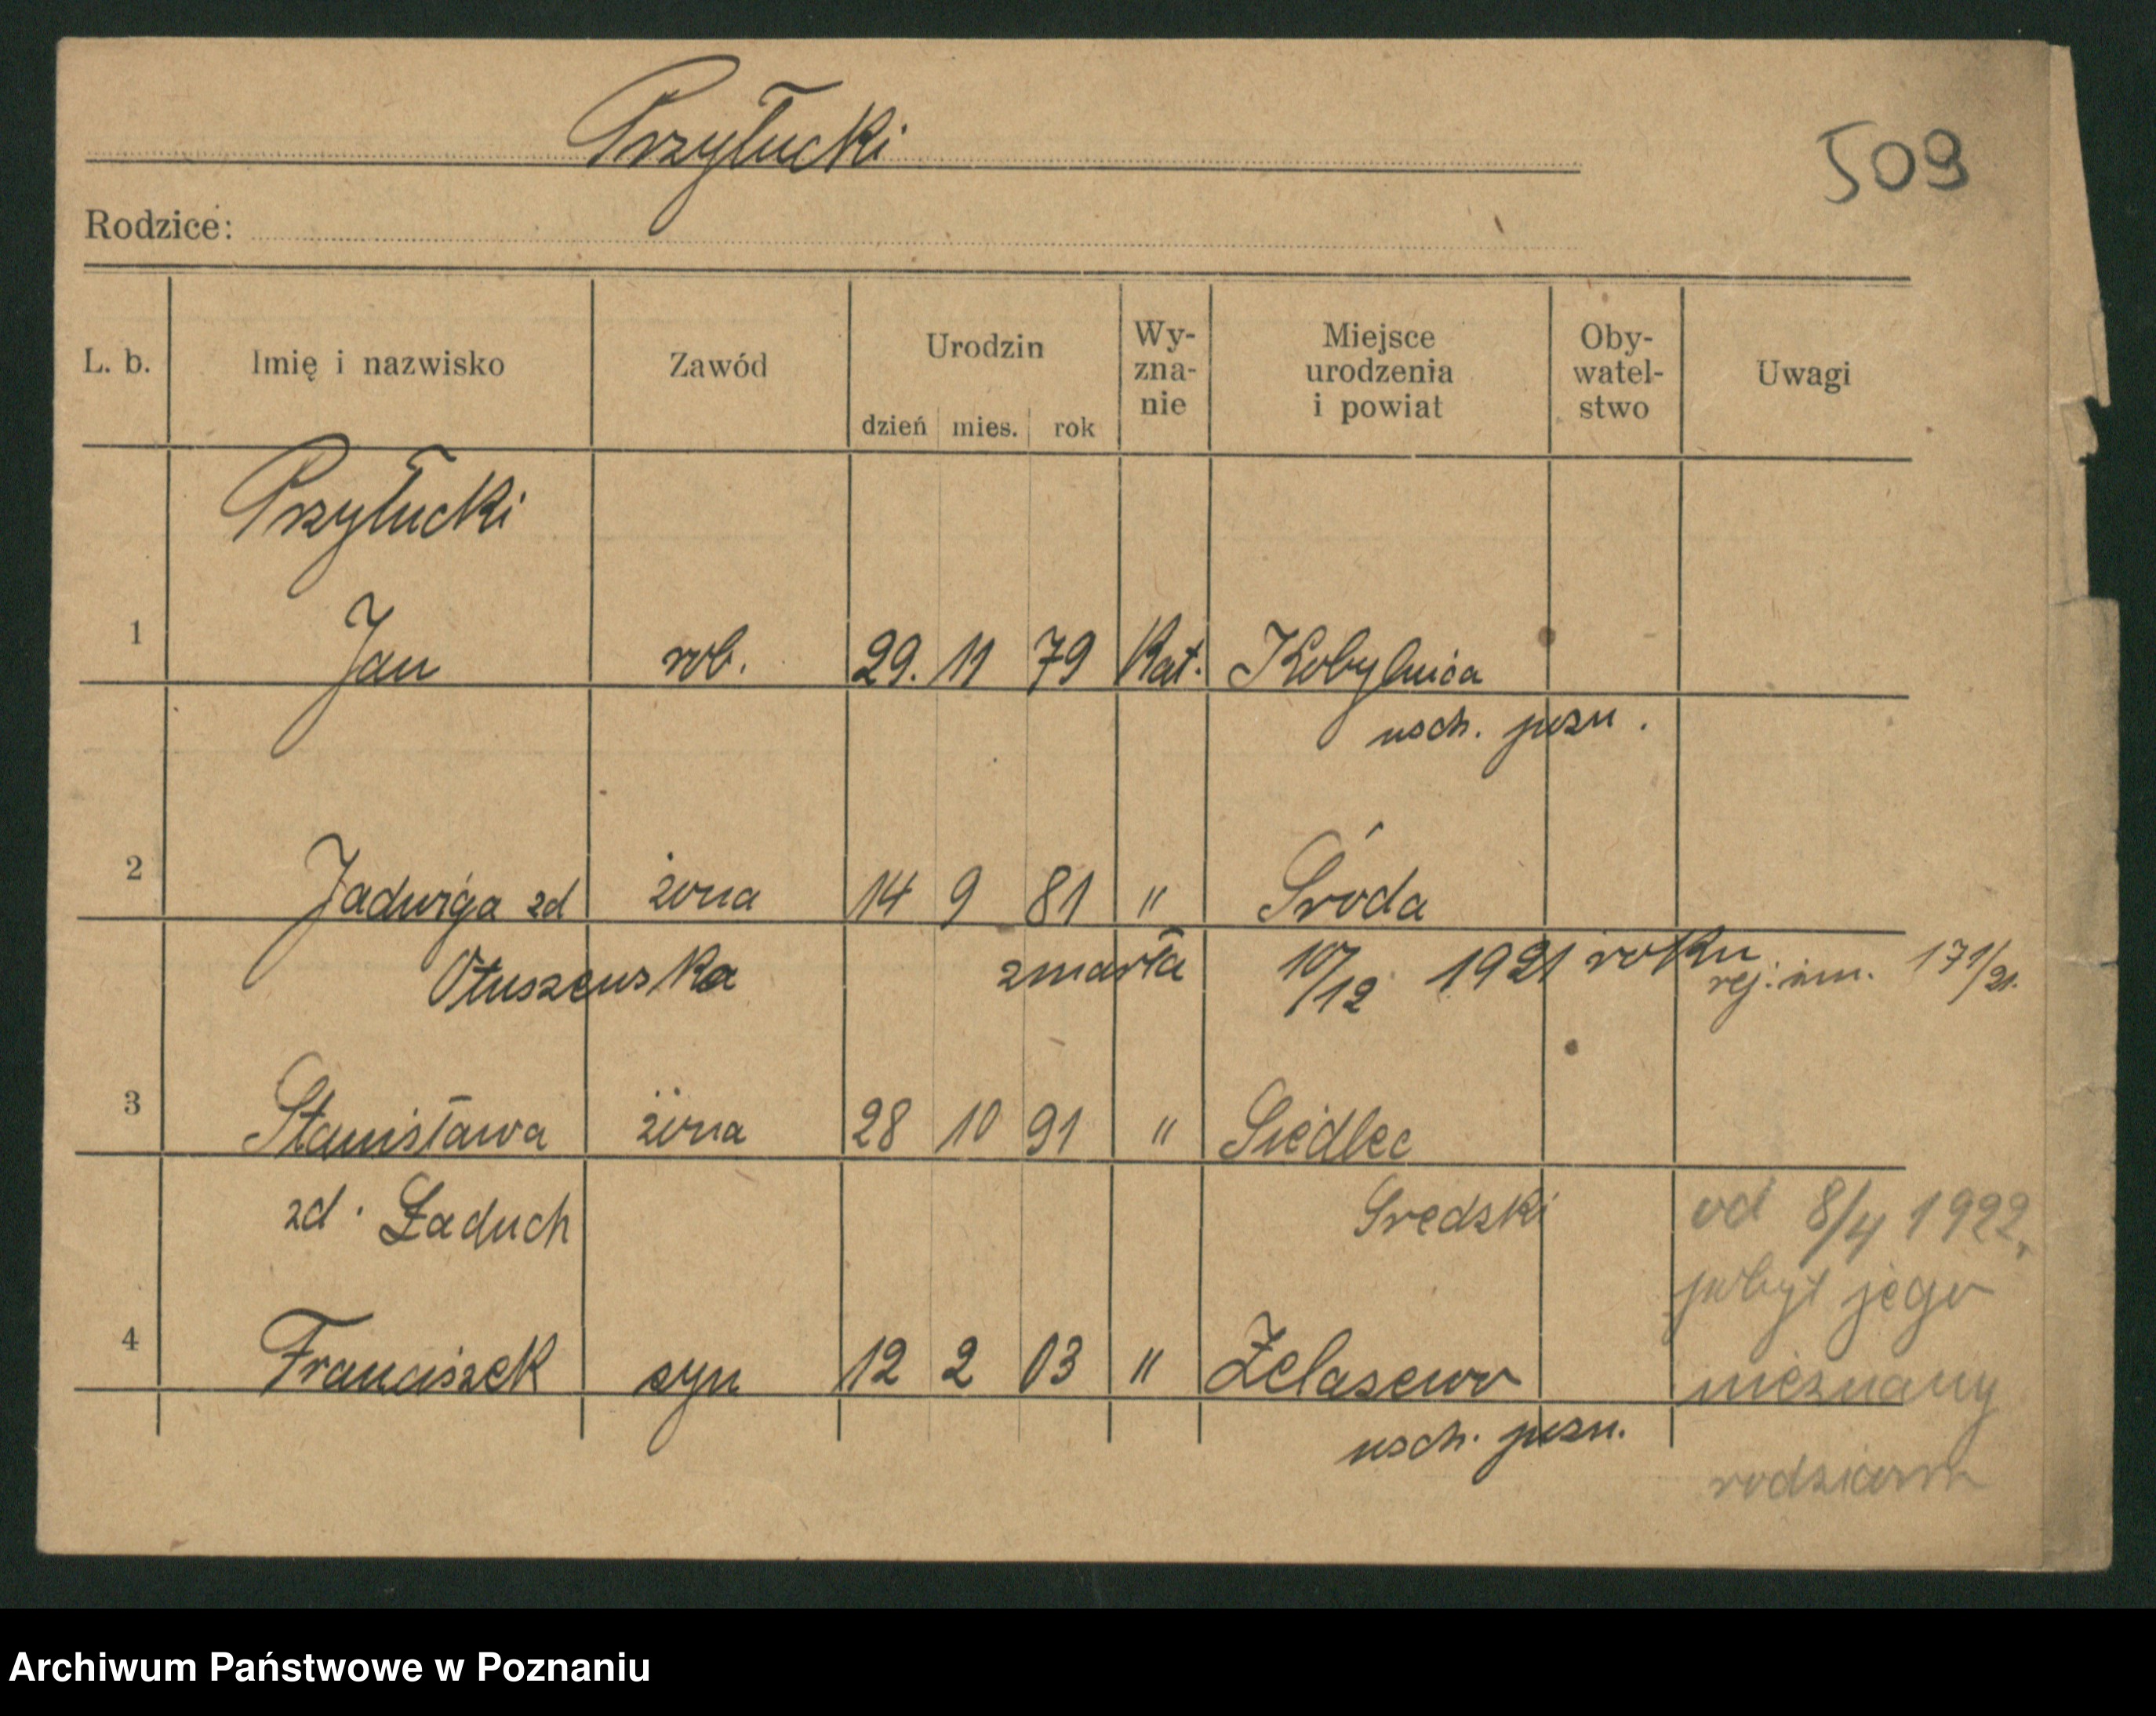 Przyłucki
509
Rodzice:
L. b. Imię i nazwisko Zawód Urodzin dzień mies. rok Wy-zna-nie Miejsce urodzenia i powiat Oby-watel-stwo Uwagi
Przyłucki
1 Jan rob. 29. 11 79 Kat. Kobylnica
wsch. pozn.
2 Jadwiga zd żona 14 9 81 " Środa
Otuszewska zmarła 10/12 1921 roku
171/21.
3 Stanisława żona 28 10 91 " Siedlec
zd. Ładuch Sredski
od 8/4 1922,
pobyt jego
4 Franciszek syn 12 2 03 " Żelasewo nieznany
wsch. pozn.
Archiwum Państwowe w Poznaniu